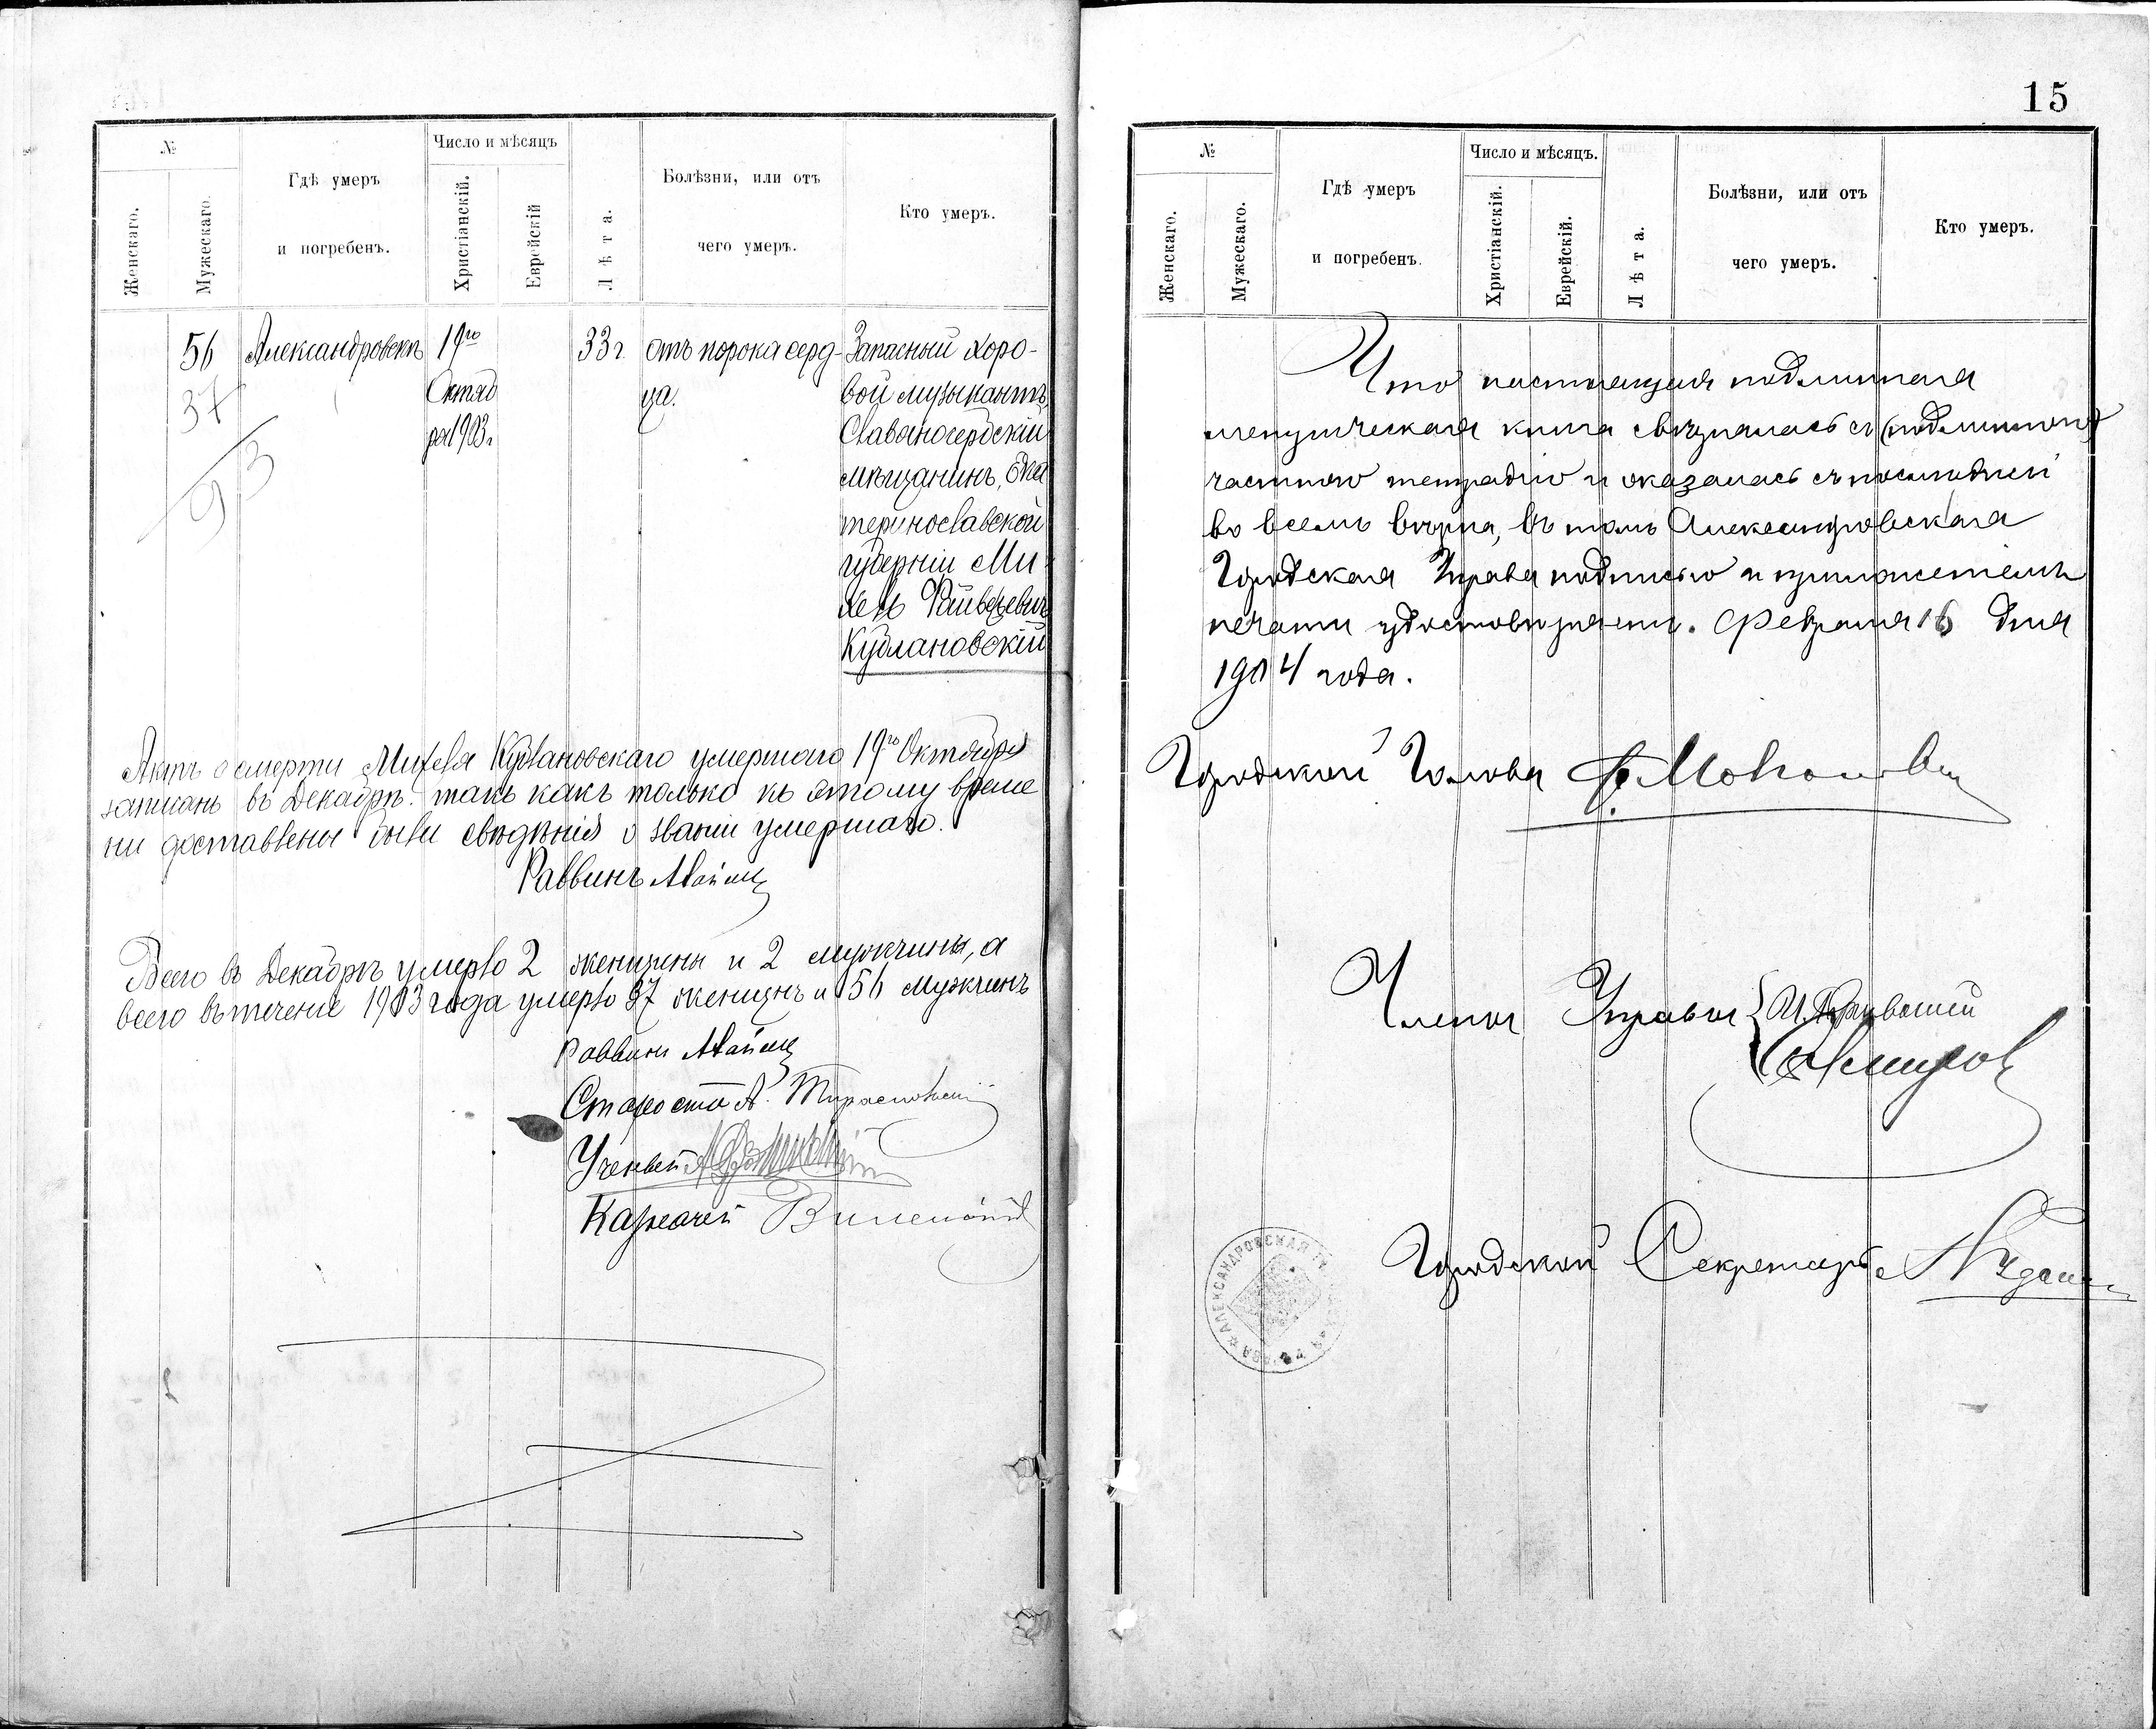 №
Женскаго.
Мужескаго.
Гдѣ умеръ
и погребенъ.
Число и мѣсяцъ
Христіанскій.
Еврейскій
Лѣта.
Болѣзни, или отъ
чего умеръ.
Кто умеръ.
56
Александровскъ
19го
Октяб
ря 1903г
33 г.
отъ порока серд-
ца.
Запасный хоро-
вой музыкантъ,
Славяносербскій
мѣщанинъ, Ека
теринославской
губерніи Ми
хель
Кублановскій
37
93
Актъ о смерти Михеля Кублановскаго умершаго 19го Октября
записанъ въ Декабрѣ. такъ какъ только къ этому време
ни доставлены были свѣдѣнія о званіи умершаго.
Раввинъ
Всего въ Декабрѣ умерло 2 женщины и 2 мужчины, а
всего въ теченіе 1903 года умерло 37 женщинъ и 56 мужчинъ
Раввинъ
Староста А. Тираспольскій
Ученый
Казначей
15
№
Женскаго.
Мужескаго.
Гдѣ умеръ
и погребенъ.
Число и мѣсяцъ.
Христіанскій.
Еврейскій.
Лѣта.
Болѣзни, или отъ
чего умеръ.
Кто умеръ.
Что настоящая подлинная
метрическая книга свѣрялась съ (подлинною)
частною тетрадью и оказалась съ послѣдней
во всемъ вѣрна, въ томъ Александровская
Городская Управа подписью и приложеніемъ
печати удостовѣряетъ. Февраля 16 дня
1904 года.
Городской Голова
Члены Управы
Городской Секретарь
АЛЕКСАНДРОВСКАЯ